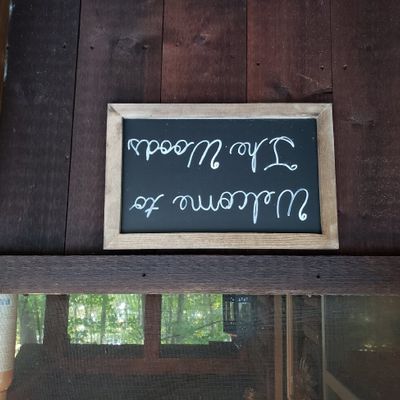 Welcome to
The Woods